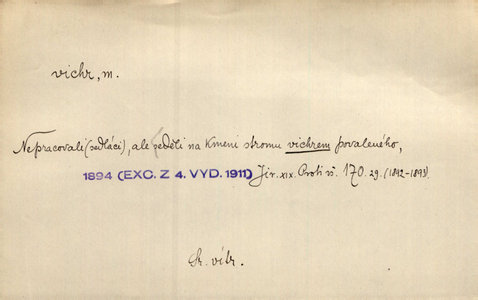 vichr, m.
Nepracovali (sedláci), ale seděli na kmeni stromu vichrem povaleného,
1894 (EXC. Z 4. VYD. 1911) Jir. XIX. Proti vš. 170. 29. (1892-1893).
Sr. vítr.